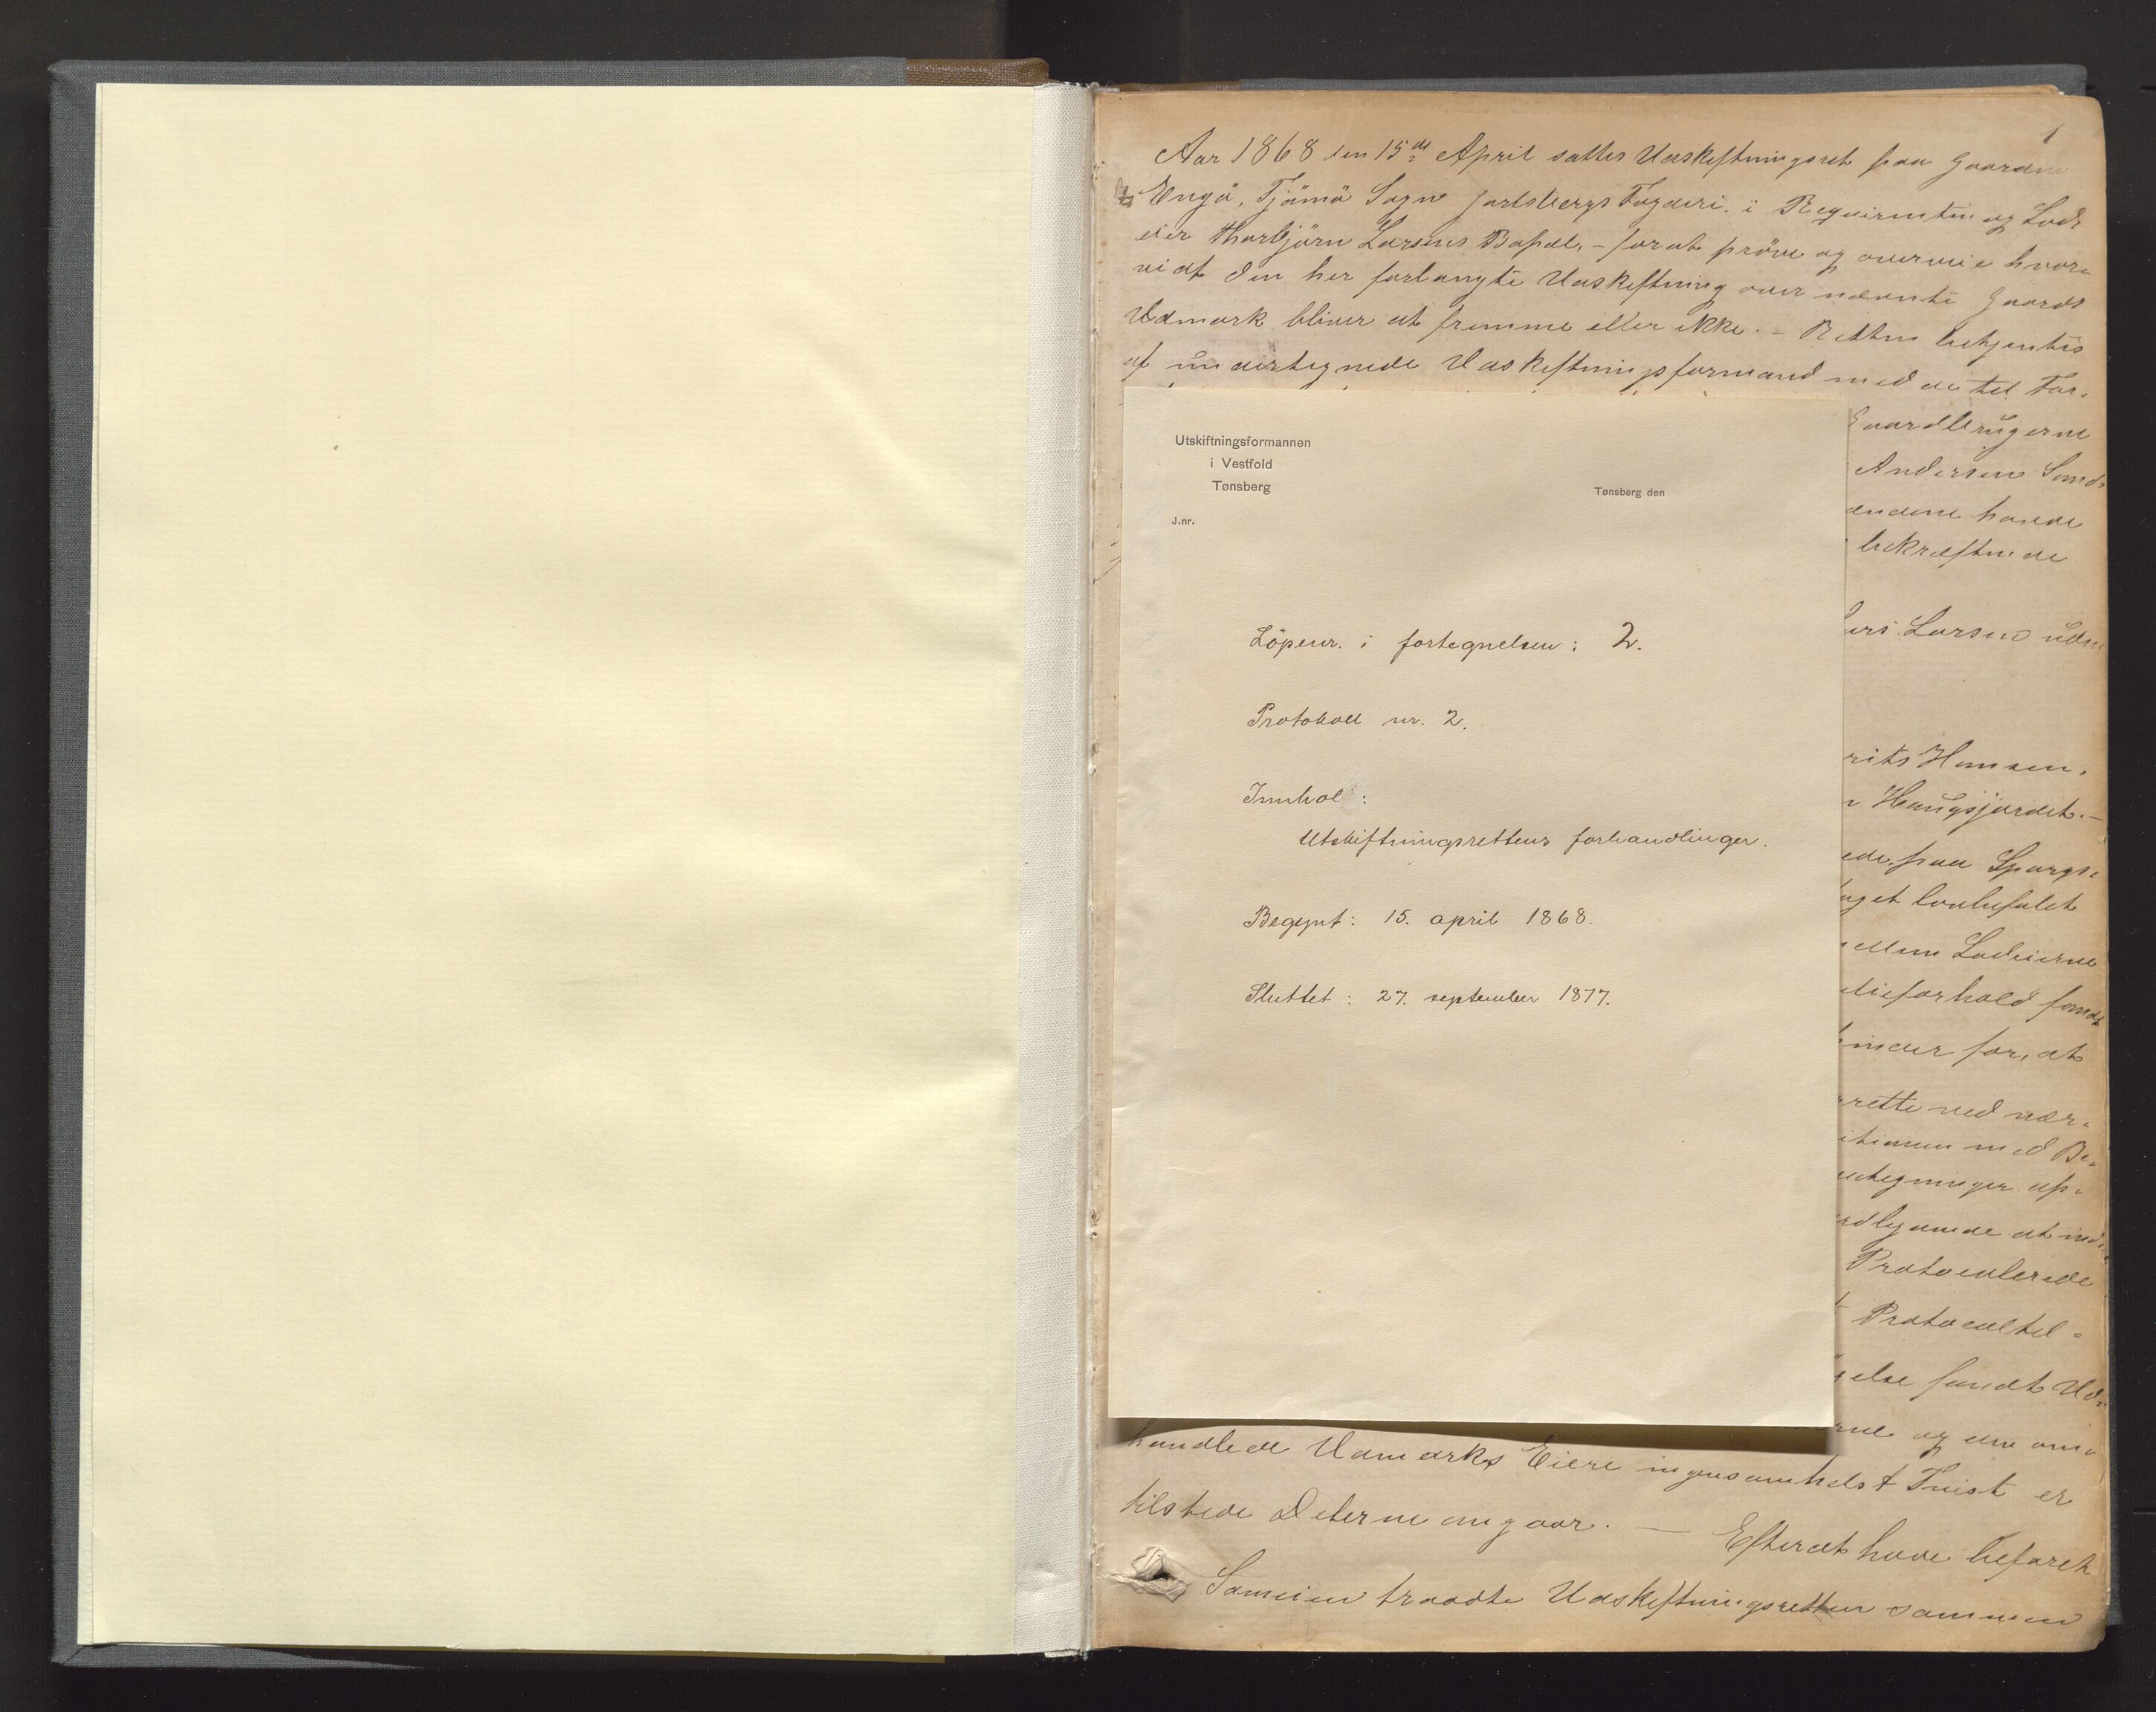 1
Aar 1868 den 15de April sattes Udskiftningsret paa Gaarden
Engö, Tjömö Sogn Jarlsbergs Fogderi, i Requirenten og Lods
eier Thorbjörn Larsens Bopæl, - for at pröve og overveie hvor-
vidt den her forlangte Udskiftning over nævnte Gaards
Udmark bliver at fremme eller ikke. - Retten betjentes
af undertegnede Udskiftningsformand med de til For-
Gaardbrugerne
Andersen
ændene havde
bekræftede
Larsen
Hansen,
Haugsjordet. -
paa Spørgs-
lovbefalet
Lodeierne
forhold fandt
for, at
rette ved nær-
med Be-
tegninger op-
at ind-
Protocolerede
Protocoltil-
else fandt Ud-
og den om-
handlede Udmarks Eiere ingensomhelst Tvist er
tilstede Deterne angaar. — Efterat have befaret
Sameien traadte Udskiftningsretten sammen
Utskiftningsformannen
i Vestfold
Tønsberg
Tønsberg den
J.nr.
Löpenr. i fortegnelsen: 2.
Protokoll nr. 2.
Innhol :
Utskiftningsrettens forhandlinger.
Begynt: 15. april 1868.
Sluttet: 27. september 1877.